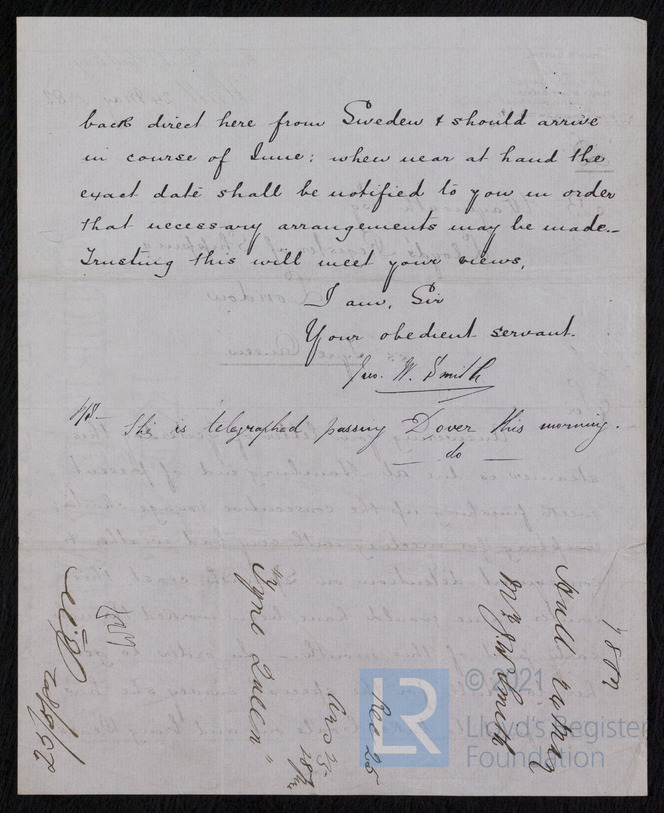 back direct here from Sweden & should arrive
in course of June: when near at hand the
exact date shall be notified to you in order
that necessary arrangements may be made.-
Trusting this will meet your views,
I am, Sir
Your obedient servant.
Jno. W. Smith
She is telegraphed passing Dover this morning.
do
Hull
Mr J W Smith
Rec 25
Ans 25
"Tyne Queen"
LR
© 2021
Lloyd's Register
Foundation